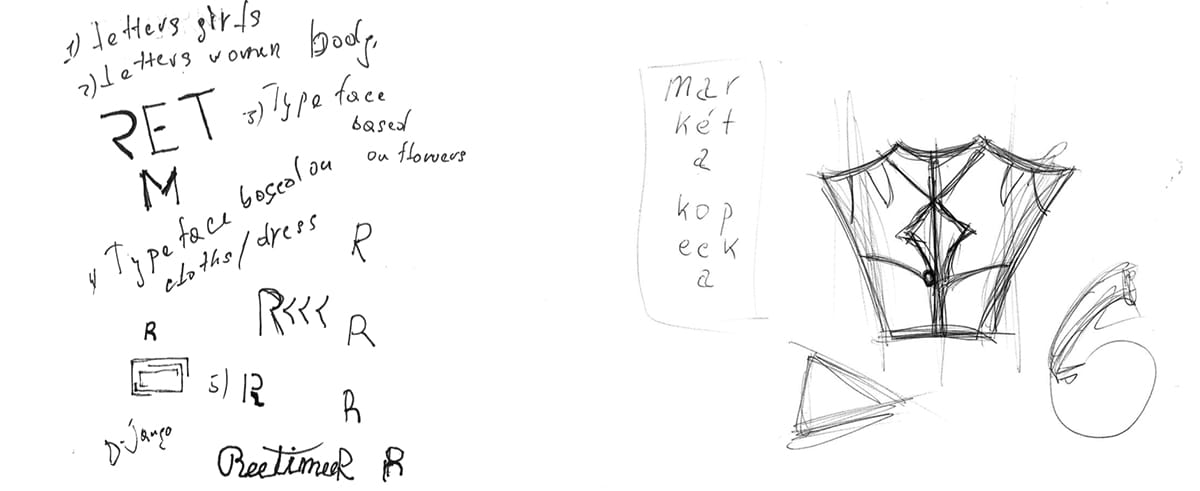 1) letters girls
2) letters women body,
RET
3) Type face
based
on flowers
M
4) Type face based on
cloths/dress
R
R<<<
R
R
5) R
R
D-jango
ReetimeeR R
mar
két
a
kop
eck
a